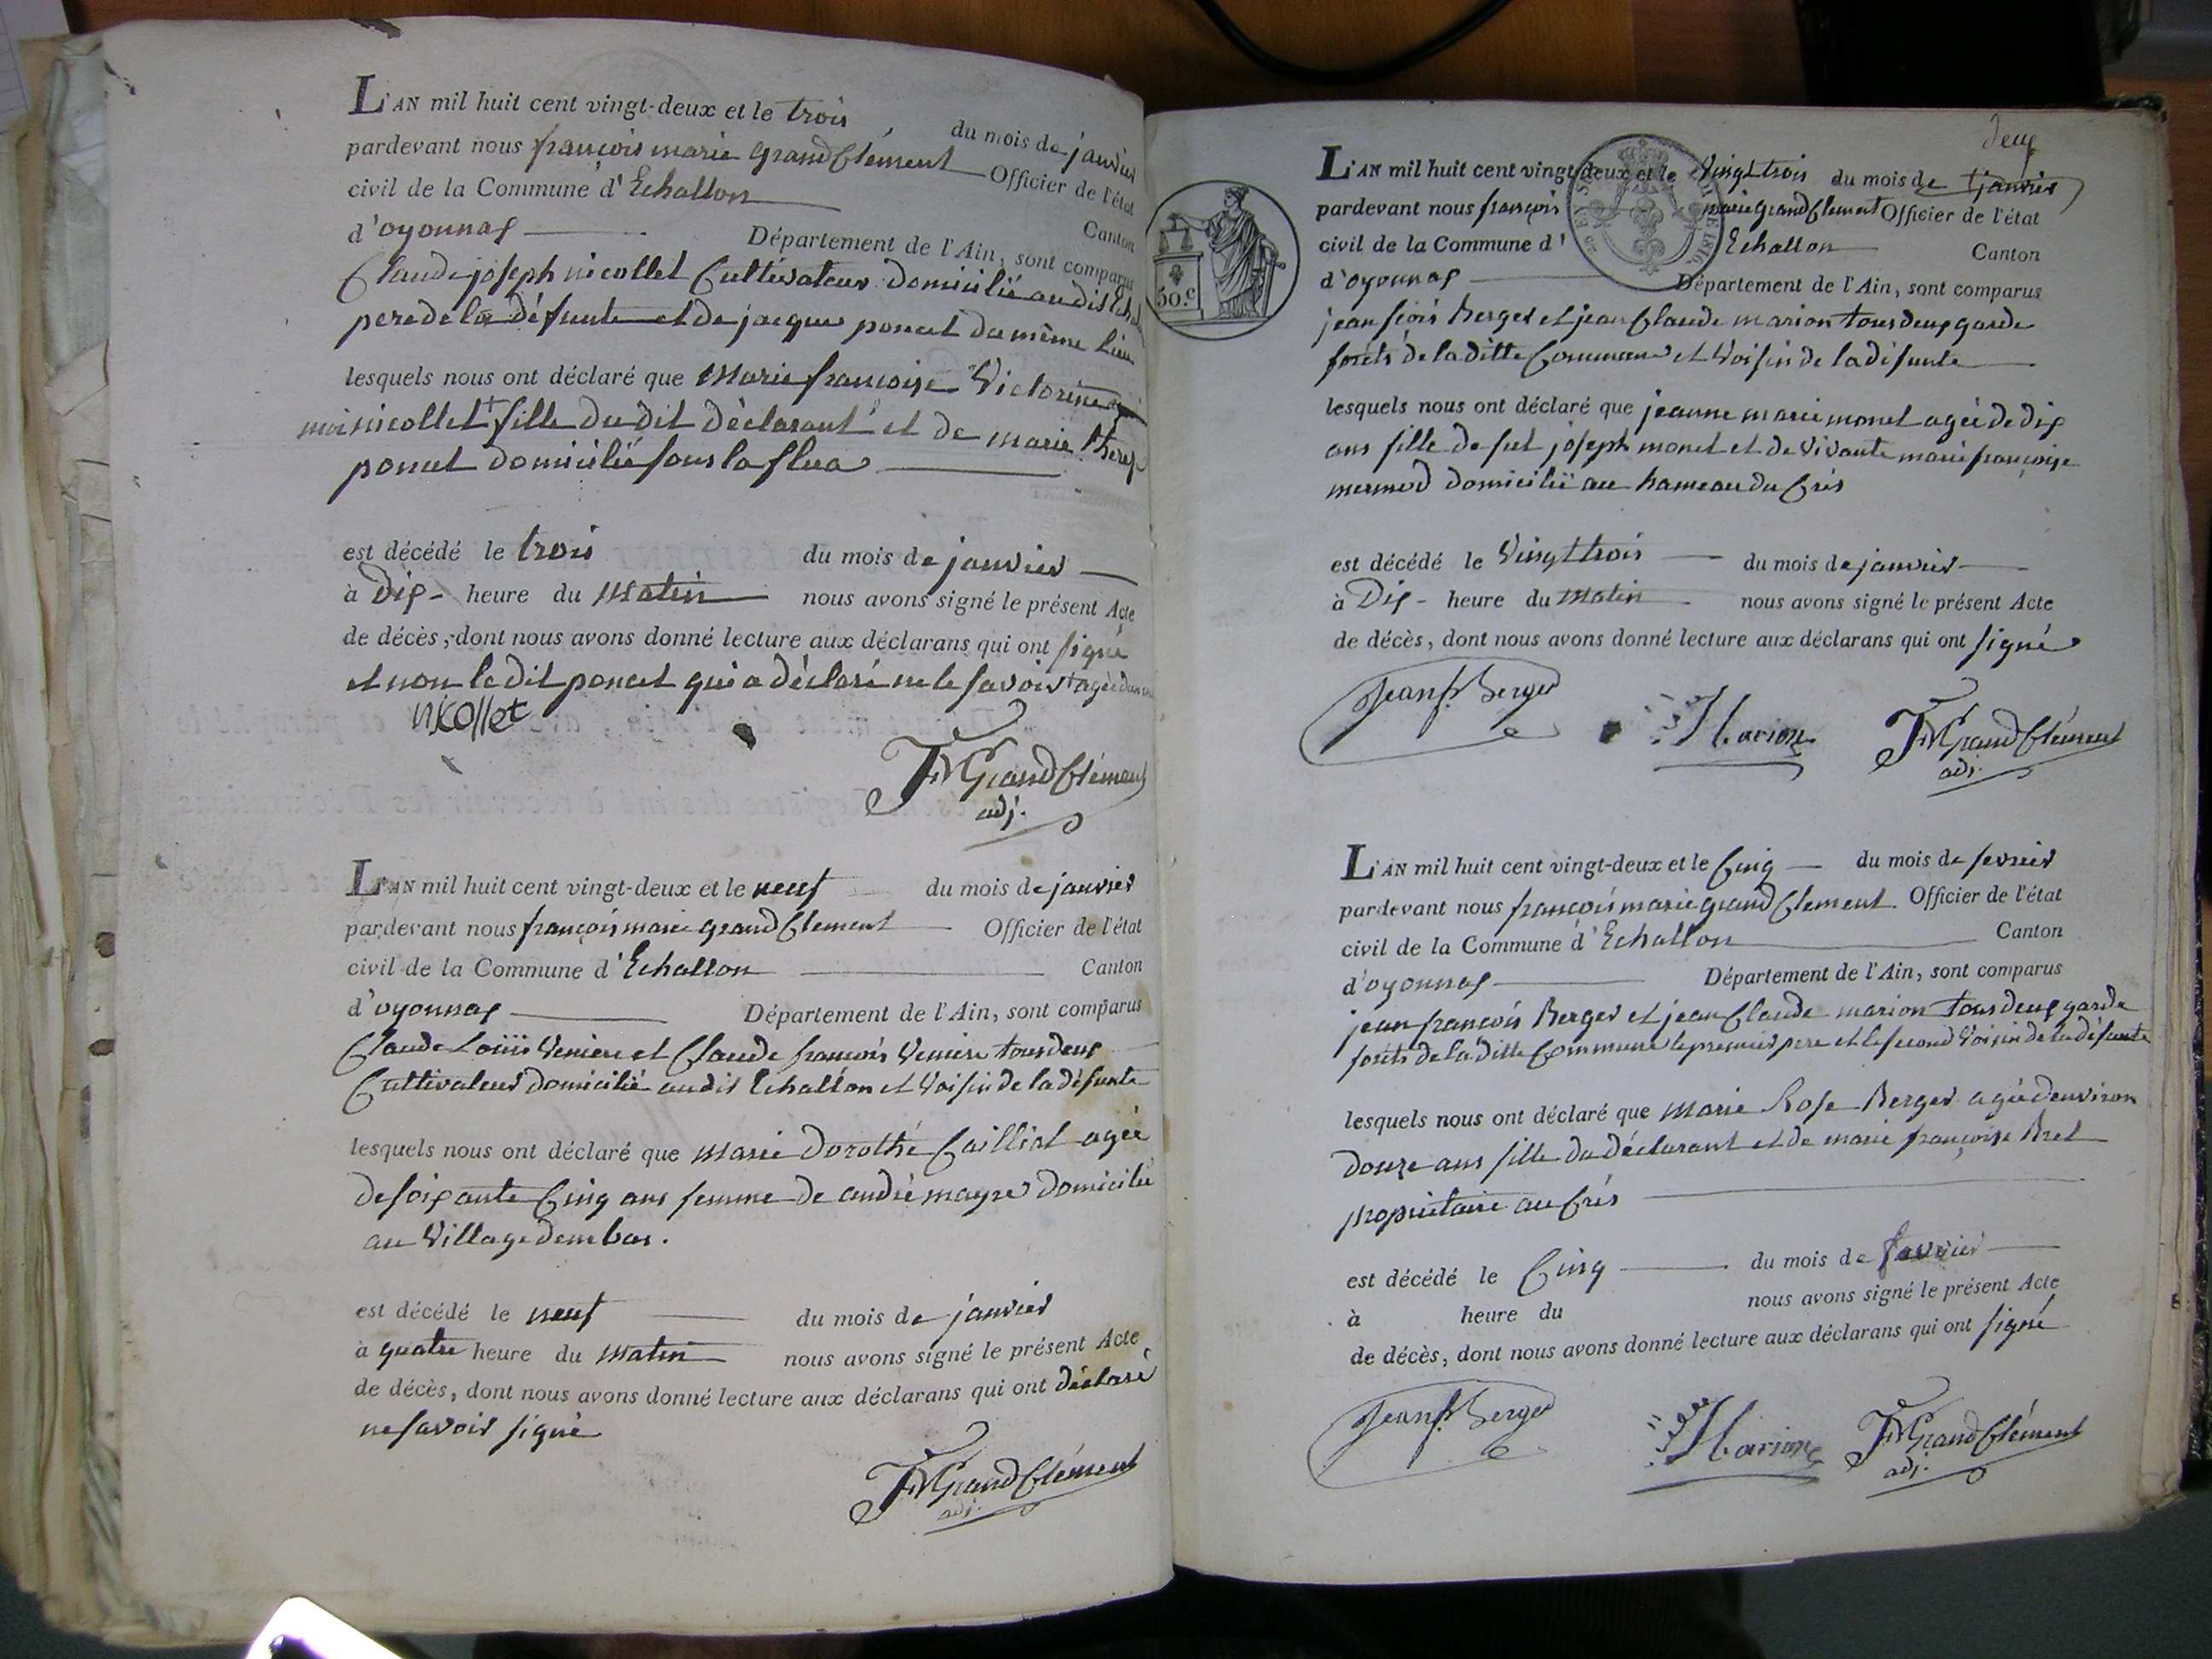 L'AN mil huit cent vingt-deux et le trois du mois de janvier
pardevant nous françois marie grand Clément Officier de l'état
civil de la Commune d'Echallon Canton
d'oyonnax Département de l'Ain, sont comparus
Claude joseph nicollet Cultivateur domicilié audit
pere de la défunte et de jacque poncet du même lieu
lesquels nous ont déclaré que Marie françoise Victorine
nicollet + fille du dit déclarant et de marie
poncet domicilié sous la
est décédé le trois du mois de janvier
à Dix heure du Matin nous avons signé le présent Acte
de décès, dont nous avons donné lecture aux déclarans qui ont signé
et non le dit poncet qui a déclaré ne le savoir + agée
nicollet
FMGrandClément
adj.
L'AN mil huit cent vingt-deux et le neuf du mois de janvier
pardevant nous françois marie grand Clement Officier de l'état
civil de la Commune d'Echallon Canton
d'oyonnax Département de l'Ain, sont comparus
Claude Louis et Claude françois tous deux
Cultivateur domicilié au dit Echallon et Voisin de la défunte
lesquels nous ont déclaré que Marie Dorothé agée
de soixante Cinq ans femme de andré domicilié
au Village dembas.
est décédé le neuf du mois de janvier
à quatre heure du Matin nous avons signé le présent Acte
de décès, dont nous avons donné lecture aux déclarans qui ont déclaré
ne savoir signé
FMGrandClément
adj.
deux
L'AN mil huit cent vingt-deux et le Vingt trois du mois de janvier
pardevant nous françois marie grand Clement Officier de l'état
civil de la Commune d'Echallon Canton
d'oyonnax Département de l'Ain, sont comparus
50.c
jean fçois Berger et jean Claude marion tous deux garde
forêts de la ditte Commune et Voisin de la défunte
lesquels nous ont déclaré que jeanne marie monet agée de dix
ans fille de fut joseph monet et de Vivante marie françoise
mermod domicilié au hameau du Crés
est décédé le Vingt trois du mois de janvier
à Dix heure du Matin nous avons signé le présent Acte
de décès, dont nous avons donné lecture aux déclarans qui ont signé
Jean f. Berger
Marion
FMGrandClément
adj.
L'AN mil huit cent vingt-deux et le Cinq du mois de fevrier
pardevant nous françois marie grand Clement Officier de l'état
civil de la Commune d'Echallon Canton
d'oyonnax Département de l'Ain, sont comparus
jean françois Berger et jean Claude marion tous deux garde
forêts de la ditte Commune le premier pere et le second Voisin de la défunte
lesquels nous ont déclaré que Marie Rose Berger agée d'environ
douze ans fille du déclarant et de marie françoise Bret
propriétaire au Crés
est décédé le Cinq du mois de favrier
à heure du nous avons signé le présent Acte
de décès, dont nous avons donné lecture aux déclarans qui ont signé
Jean f. Berger
Marion
FMGrandClément
adj.